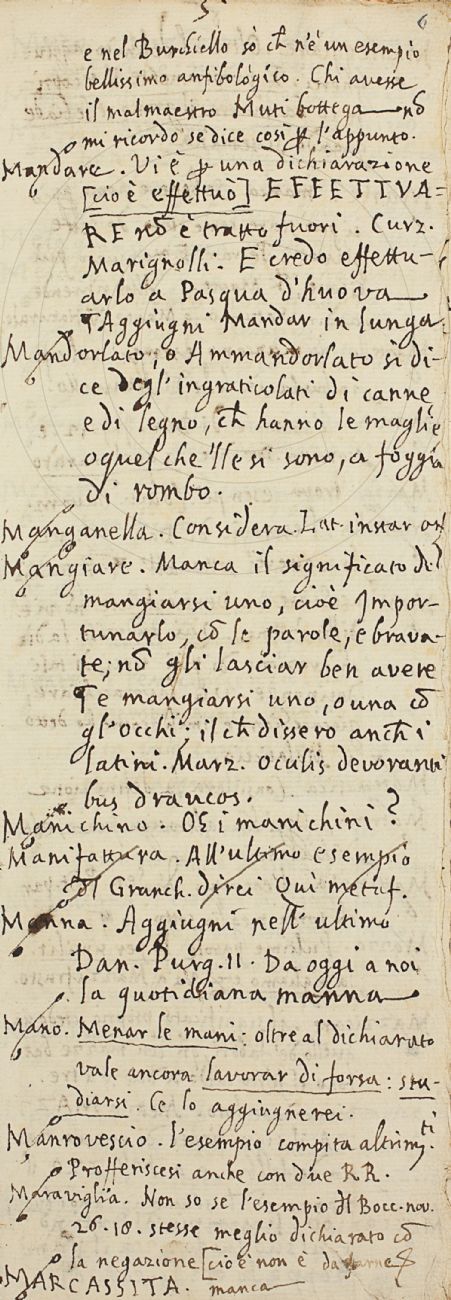 5 6
e nel Burchiello sò ch̄ n'è un esempio
bellissimo anfibológico. Chi avesse
il malmaestro Muti bottega nō
mi ricordo se dice così p̱ l'appunto.
Mandare. Vi è p̱ una dichiarazione
[cioè effettuò] EFEETTVA=
RE nō è tratto fuori. Curz.
Marignolli. E credo effettu-
arlo a Pasqua d'huova
¶Aggiugni Mandar in lunga
Mandorlato, o Ammandorlato si di-
ce degl' ingraticolati di canne
e di legno, ch̄ hanno le maglie
o quel che 'lle si sono, a foggia
di rombo.
Manganella. Considera Lat. instar
Mangiare. Manca il significato del
mangiarsi uno, cioè Impor-
tunarlo, cō le parole, e brava-
te; nō gli lasciar ben avere
¶e mangiarsi uno, o una cō
gl'occhi; il ch̄ dissero anch̄ i
latini. Marz. oculis devoranti
bus draucos.
Manichino. i manichini?
Manifattura. All'ultimo esempio
dl Granch. direi Qui metaf.
Manna. Aggiugni nell' ultimo
Dan. Purg. 11. Da oggi a noi
la quotidiana manna
Mano. Menar le mani: oltre al dichiarato
vale ancora lavorar di forsa: stu-
diarsi. Ce lo aggiugnerei.
Manrovescio. l'esempio compita altrimti.
Profferiscesi anche con due RR.
Maraviglia. Non so se l'esempio dl Bocc. nov.
26.18. stesse meglio dichiarato cō
la negazione [cioè non è da farne
MARCASSITA. manca